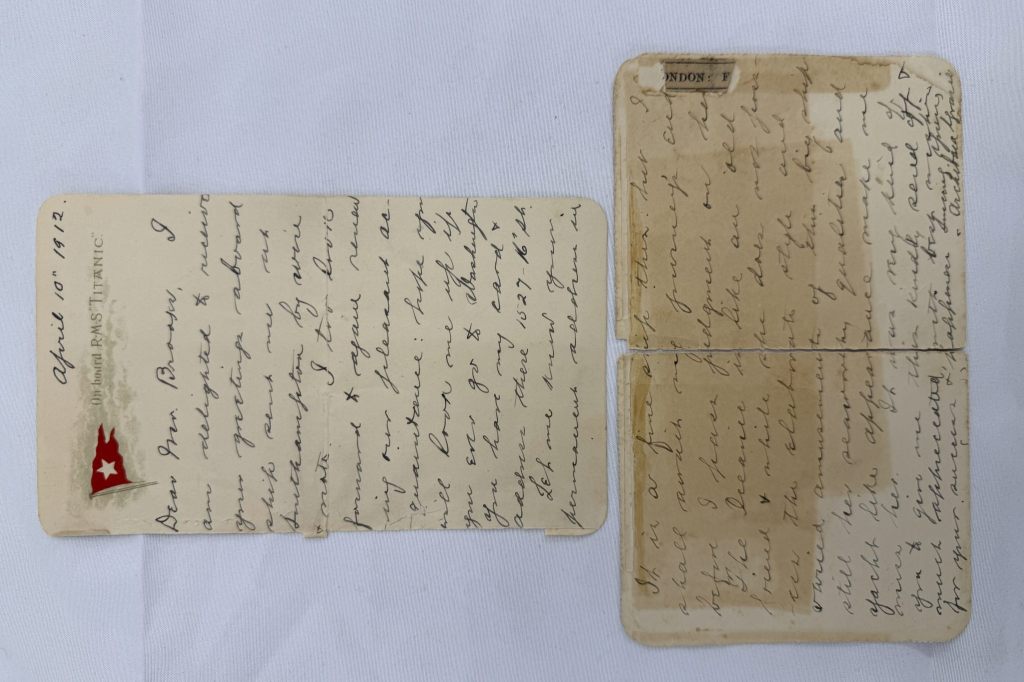 April 10" 1912.
On board R.M.S. "TITANIC".
Dear Mr. I
am delighted to receive
your greetings aboard
ship sent me at
Southampton by wire
& note. I too look
forward to again renew
ing our pleasant ac-
quaintance: hope you
will look me up if
you ever go to Washington
you have my card &
address there 1527-16" St.
Let me know your
permanent address in
ONDON: F
It is a fine ship this but I
shall await my journey's end
before I pass judgment on her
The Oceanic is like an old
friend & while she does not pos
sess the elaborate style and
varied amusement of this big ship
still her seaworthy qualities and
yacht like appearance make me
miss her. It was very kind of
you to give me this kindly send off &
much appreciated, with best wishes
for your success & happiness Yours
Archibald Gracie.